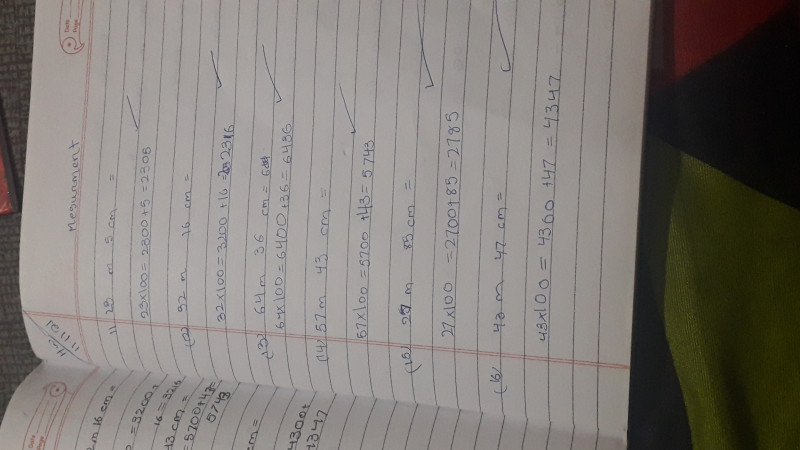 Mesurment
11 23 m 5 cm =
23x100 = 2300+5 = 2305
(12) 32 m 16 cm =
32x100 = 3200 + 16 = 2316
(13) 64 m 36 cm =
64x100 = 6400+36 = 6436
(14) 57 m 43 cm =
57x100 = 5700 +43 = 5743
(15) 27 m 85 cm =
27x100 = 2700+85 = 2785
(16) 43 m 47 cm =
43x100 = 4300 +47 = 4347
m 16 cm =
= 3200+
16 = 3216
13 cm =
= 5700+43
5743
cm =
4300+
4347